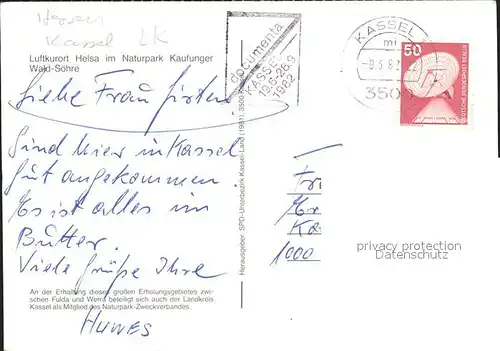 Hessen
Kassel LK
Luftkurort Helsa im Naturpark Kaufunger
Wald-Söhre
Liebe Frau
Sind hier in Kassel
gut angekommen
Es ist alles in
Butter.
Viele Grüße Ihre
HUWES
An der Erhaltung dieses großen Erholungsgebietes zwi-
schen Fulda und Werra beteiligt sich auch der Landkreis
Kassel als Mitglied des Naturpark-Zweckverbandes.
Herausgeber: SPD-Unterbezirk Kassel-Land (1981) 3500
documenta
KASSEL
19.6-28.9
1982
KASSEL
mi
3500
50
DEUTSCHE BUNDESPOST BERLIN
Fr
Ka
1000
privacy protection
Datenschutz